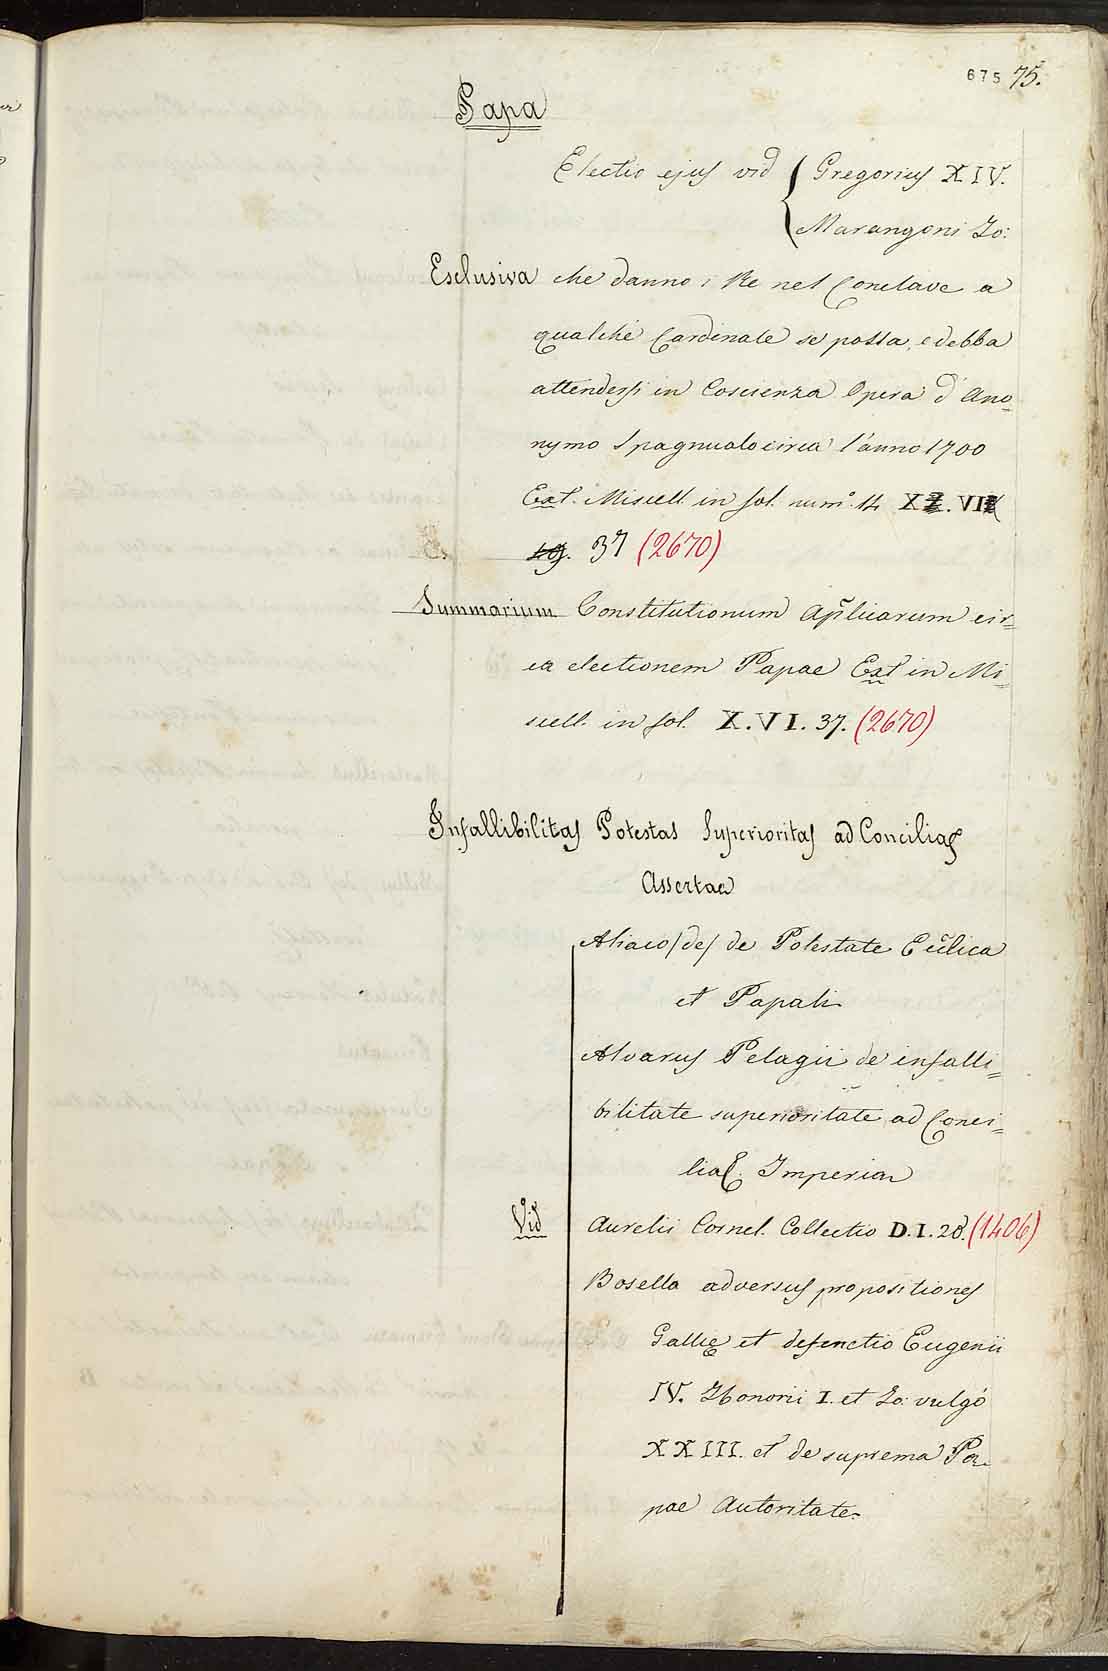 675 75.
Papa
Electio ejus vid { Gregorius XIV.
Marangoni Jo:
Esclusiva che danno i Re nel Conclave a
qualche Cardinale se possa, e debba
attendersi in Coscienza Opera d'Ano=
nymo Spagnuolo circa l'anno 1700
Ext. Miscell. in fol. num.º 14 X. VI
37 (2670)
Summarium Constitutionum Aplicarum cir=
ca electionem Papae Ext in Mi=
scell. in fol. X. VI. 37. (2670)
Infallibilitas Potestas Superioritas ad Concilia
Assertae
Aliaco (de) de Potestate Ecclica
et Papali
Alvarus Pelagii de infalli=
bilitate superioritate ad Conci=
lia Imperia
Vid Aurelii Cornel. Collectio D. I. 28. (1406)
Bosella adversus propositiones
Gallię et defenctio Eugenii
IV. Honorii I. et Jo: vulgò
XXIII. et de suprema Pa=
pae Autoritate.